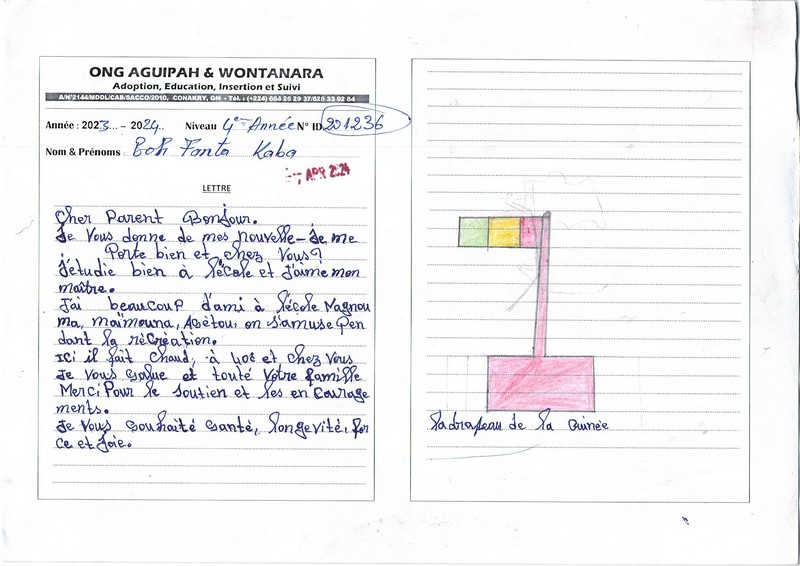 ONG AGUIPAH & WONTANARA
Adoption, Education, Insertion et Suivi
Année : 2023... - 2024.. Niveau 4e Année N° ID 201236
Nom & Prénoms : Boh Fanta Kaba
APR 2024
LETTRE
Cher Parent Bonjour.
Je Vous donne de mes nouvelle - Je me
Porte bien et chez Vous?
J'étudie bien à l'école et J'aime mon
maître.
J'ai beaucoup d'ami à l'école Nagnou
ma, maïmouna, on s'amuse Pen
dant la récréation.
ici il fait chaud, à et chez Vous
Je Vous salue et touté Votre famille
Merci Pour le soutien et les en courage
ments.
Je Vous souhaité santé, longevité, for
ce et Joie.
la drapeau de la Guinée